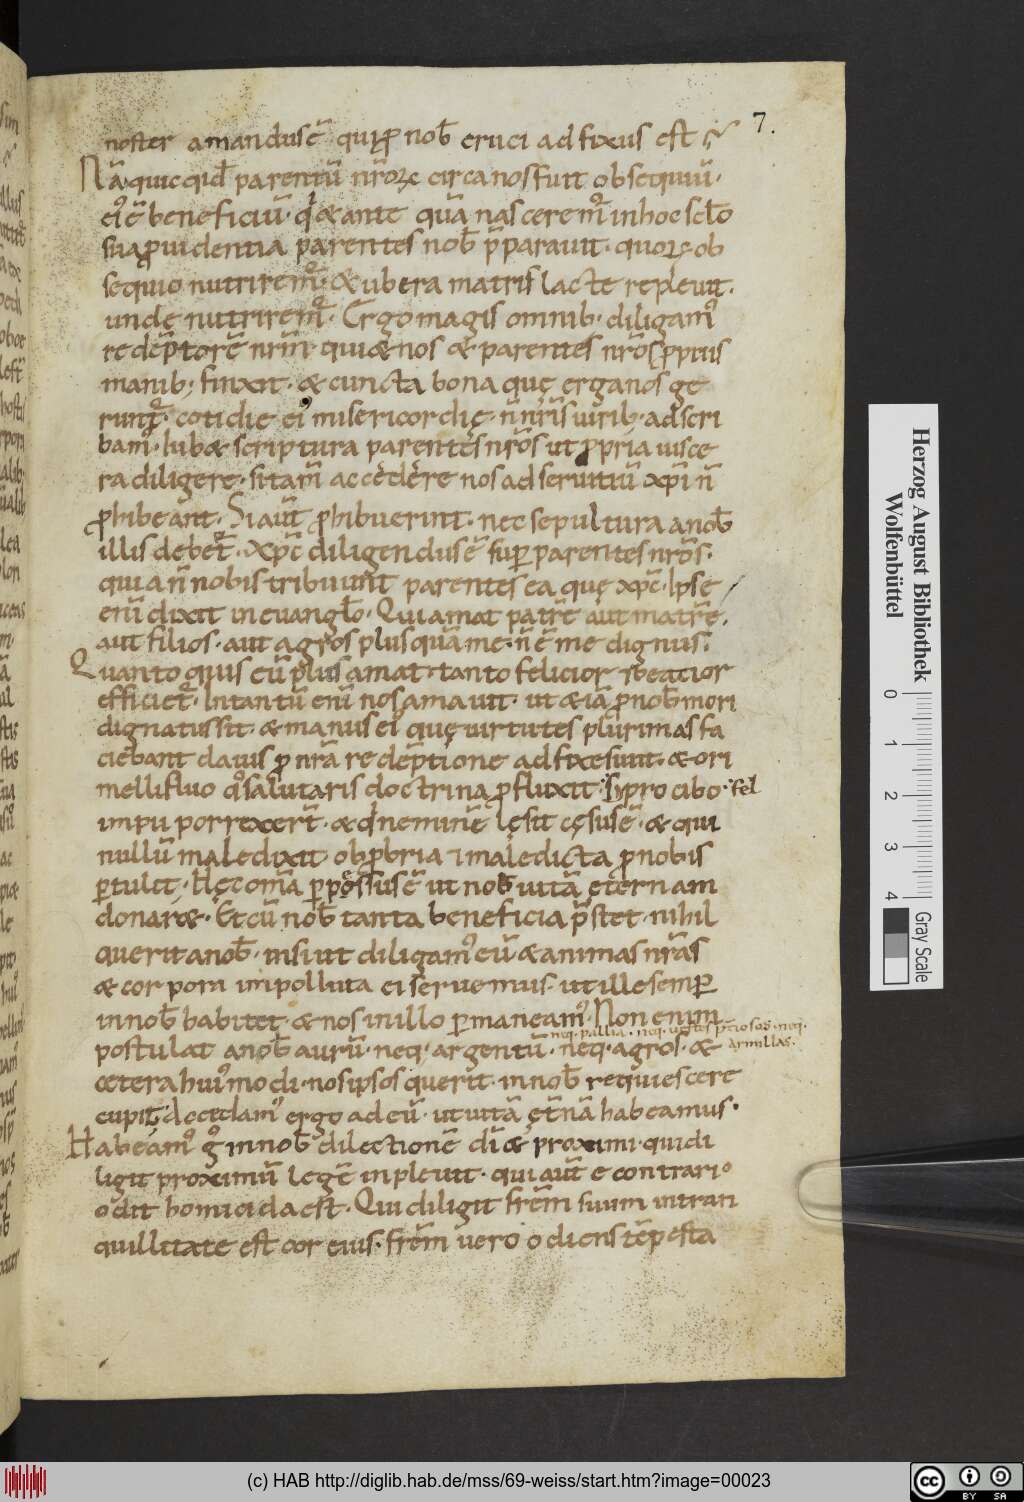 7.
noster amandus ē quiꝓ nob̄ cruci adfixus est
Nā quicqid parentū nr̄oꝝ circa nos fuit obsequiū·
ei᾽ ē beneficiū· qd̄ &ante quā nasceremr̄ inhoc scło
sua ꝓuidentia parentes nob̄ p̄parauit· quoꝝ ob
sequio nutriremr̄· &ubera matris lacte repleuit·
unde nutriremr̄· Ergo magis omnib· diligam᾽
redēptorē nrm̄· qui& nos & parentes nr̄os ꝓpriis
manib; finxit· & cuncta bona quę erga nos ge
runt̄· cotidie ei᾽ misericordię· n̄ nr̄is uirib; adscri
bam᾽· Iub& scriptura parentes nr̄os ut ꝓpria uisce
ra diligere· si tam̄ accedere nos ad seruitiū xp̄i n̄
ꝓhibeant· Si aūt ꝓhibuerint· nec sepultura anob̄
illis deber̄· Xp̄c diligendus ē sup̄ parentes nr̄os·
quia n̄ nobis tribuunt parentes ea quę xp̄c· Ipse
enī dixit in euangło· Qui amat patrē aut matrē·
aut filios· aut agros plusquā me· n̄ ē me dignus·
Quanto quis eū plus amat· tanto felicior &beatior
efficiet̄· Intantū enī nos amauit· ut &iā ꝓ nob̄ mori
dignatus sit· & manus ei᾽ quę uirtutes plurimas fa
ciebant clauis ꝓ nr̄a redēptione adfixe sunt· & ori
mellifluo q᾽ salutaris doctrina ꝓfluxit· ypro cibo· fel
impii porrexerī· & qd̄ neminē lęsit cęsus ē· & qui
nullū maledixit· obꝓbria &maledicta ꝓ nobis
ꝑtulit· Hęc omā ꝑpossus ē ut nob̄ uitā ęternam
donar&· Et cū nob̄ tanta beneficia p̄stet· nihil
querit anob̄· nisi ut diligam᾽ eū· &animas nr̄as
& corpora impolluta ei seruemus· ut ille semꝑ
in nob̄ habitet· & nos in illo ꝑmaneam᾽· Non enim
neq· pallia· neq· uestes p̄ciosas· neq·
armillas·
postulat anob̄ aurū· neq; argentū· neq· agros· &
cetera hui᾽modi· nos ipsos querit· in nob̄ requiescere
cupit· dęcitdam᾽ ergo ad eū· ut uitā ęt̄nā habeamus·
Habeam᾽ g᾽ in nob̄ dilectionē dī & proximi· qui di
ligit proximū legē inpleuit· qui aūt econtrario
odit homicida est· Qui diligit frēm suum intran
quillitate est cor eius· frēm uero odiens tēpesta
Herzog August Bibliothek
Wolfenbüttel
0 1 2 3 4
Gray Scale
(c) HAB http://diglib.hab.de/mss/69-weiss/start.htm?image=00023
cc BY SA